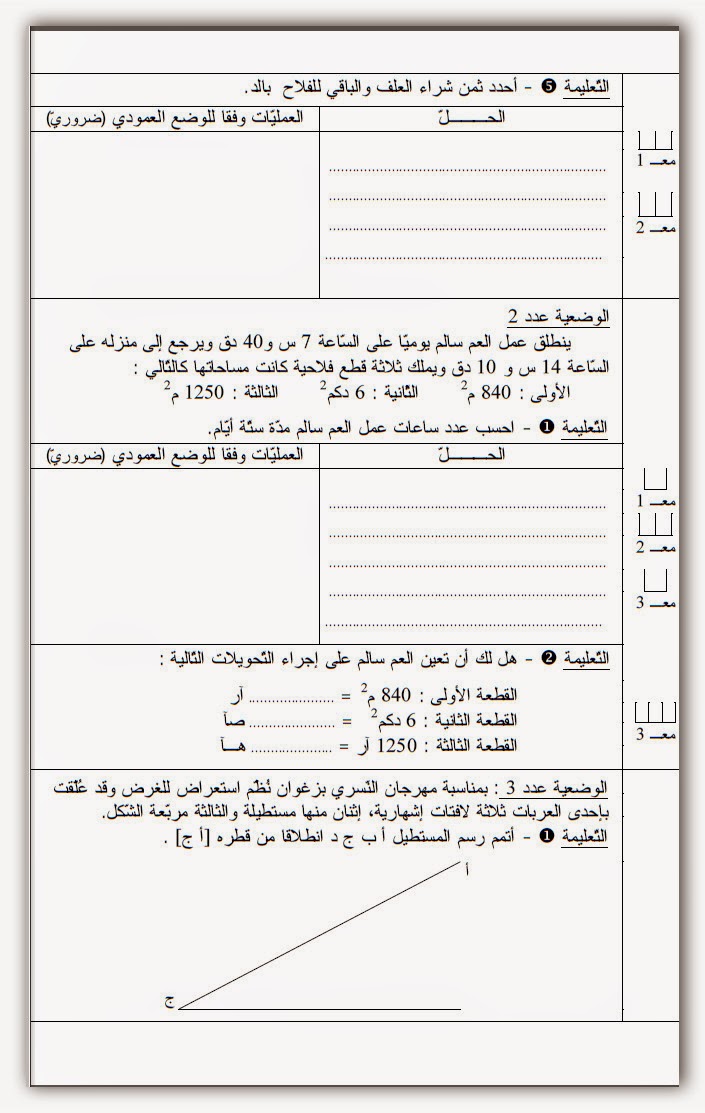 التعليمة ❺ - أحدد ثمن شراء العلف والباقي للفلاح بالد.
الحـــــــلّ
العمليّات وفقا للوضع العمودي (ضروريّ)
......................................................................
......................................................................
......................................................................
......................................................................
معـ 1
معـ 2
الوضعية عدد 2
ينطلق عمل العم سالم يوميّا على السّاعة 7 س و40 دق ويرجع إلى منزله على
السّاعة 14 س و 10 دق ويملك ثلاثة قطع فلاحية كانت مساحاتها كالتّالي :
الأولى : 840 م² الثّانية : 6 دكم² الثالثة : 1250 م²
التّعليمة ❶ - احسب عدد ساعات عمل العم سالم مدّة ستّة أيّام.
الحـــــــلّ
العمليّات وفقا للوضع العمودي (ضروريّ)
......................................................................
......................................................................
......................................................................
......................................................................
......................................................................
معـ 1
معـ 2
معـ 3
التّعليمة ❷ - هل لك أن تعين العم سالم على إجراء التّحويلات التّالية :
القطعة الأولى : 840 م² = ...................... آر
القطعة الثّانية : 6 دكم² = ...................... صآ
القطعة الثالثة : 1250 آر = ..................... هــآ
معـ 3
الوضعية عدد 3 : بمناسبة مهرجان النّسري بزغوان نُظّم استعراض للغرض وقد عُلّقت
بإحدى العربات ثلاثة لافتات إشهارية، إثنان منها مستطيلة والثالثة مربّعة الشّكل.
التّعليمة ❶ - أتمم رسم المستطيل أ ب ج د انطلاقا من قطره [أ ج] .
أ
ج